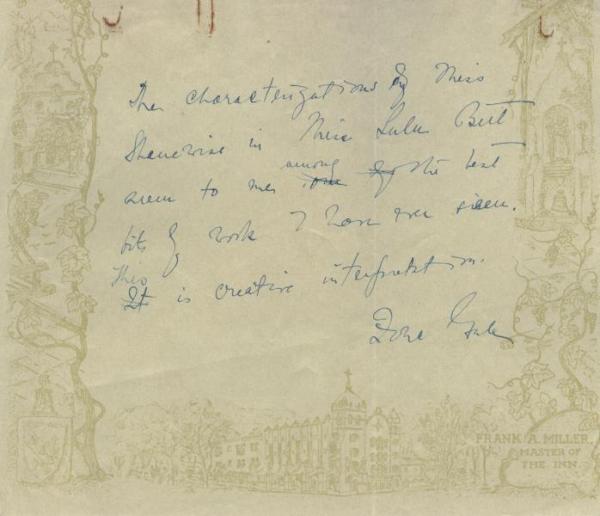 The characterizations of Miss
Shanewise in Miss Lulu Bett
among
seem to me one of the best
bits of work I have ever seen.
This
It is creative interpretation.
Zona Gale
FRANK A. MILLER
MASTER OF
THE INN